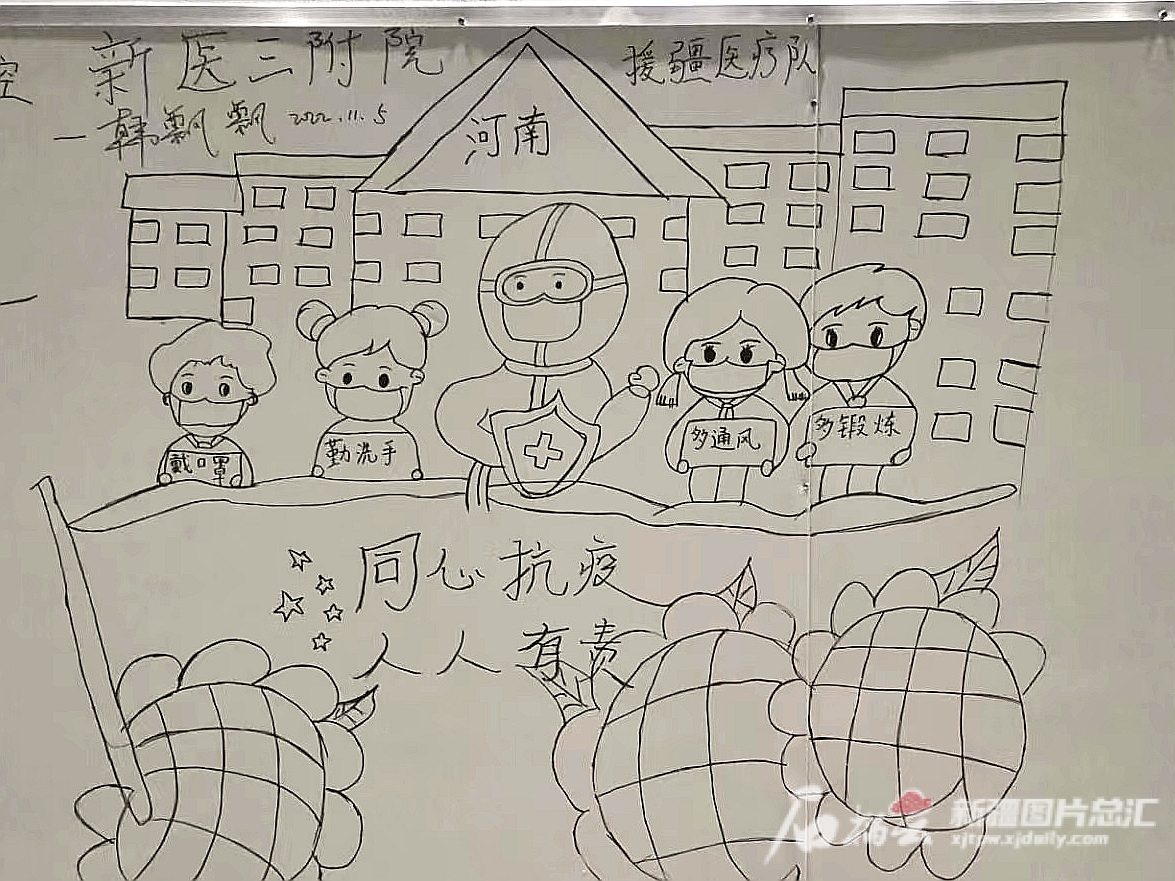 控
新医三附院
援疆医疗队
一韩飘飘 2022.11.5
河南
戴口罩
勤洗手
多通风
多锻炼
同心抗疫
人人有责
新疆图片总汇
xjtpw.xjdaily.com